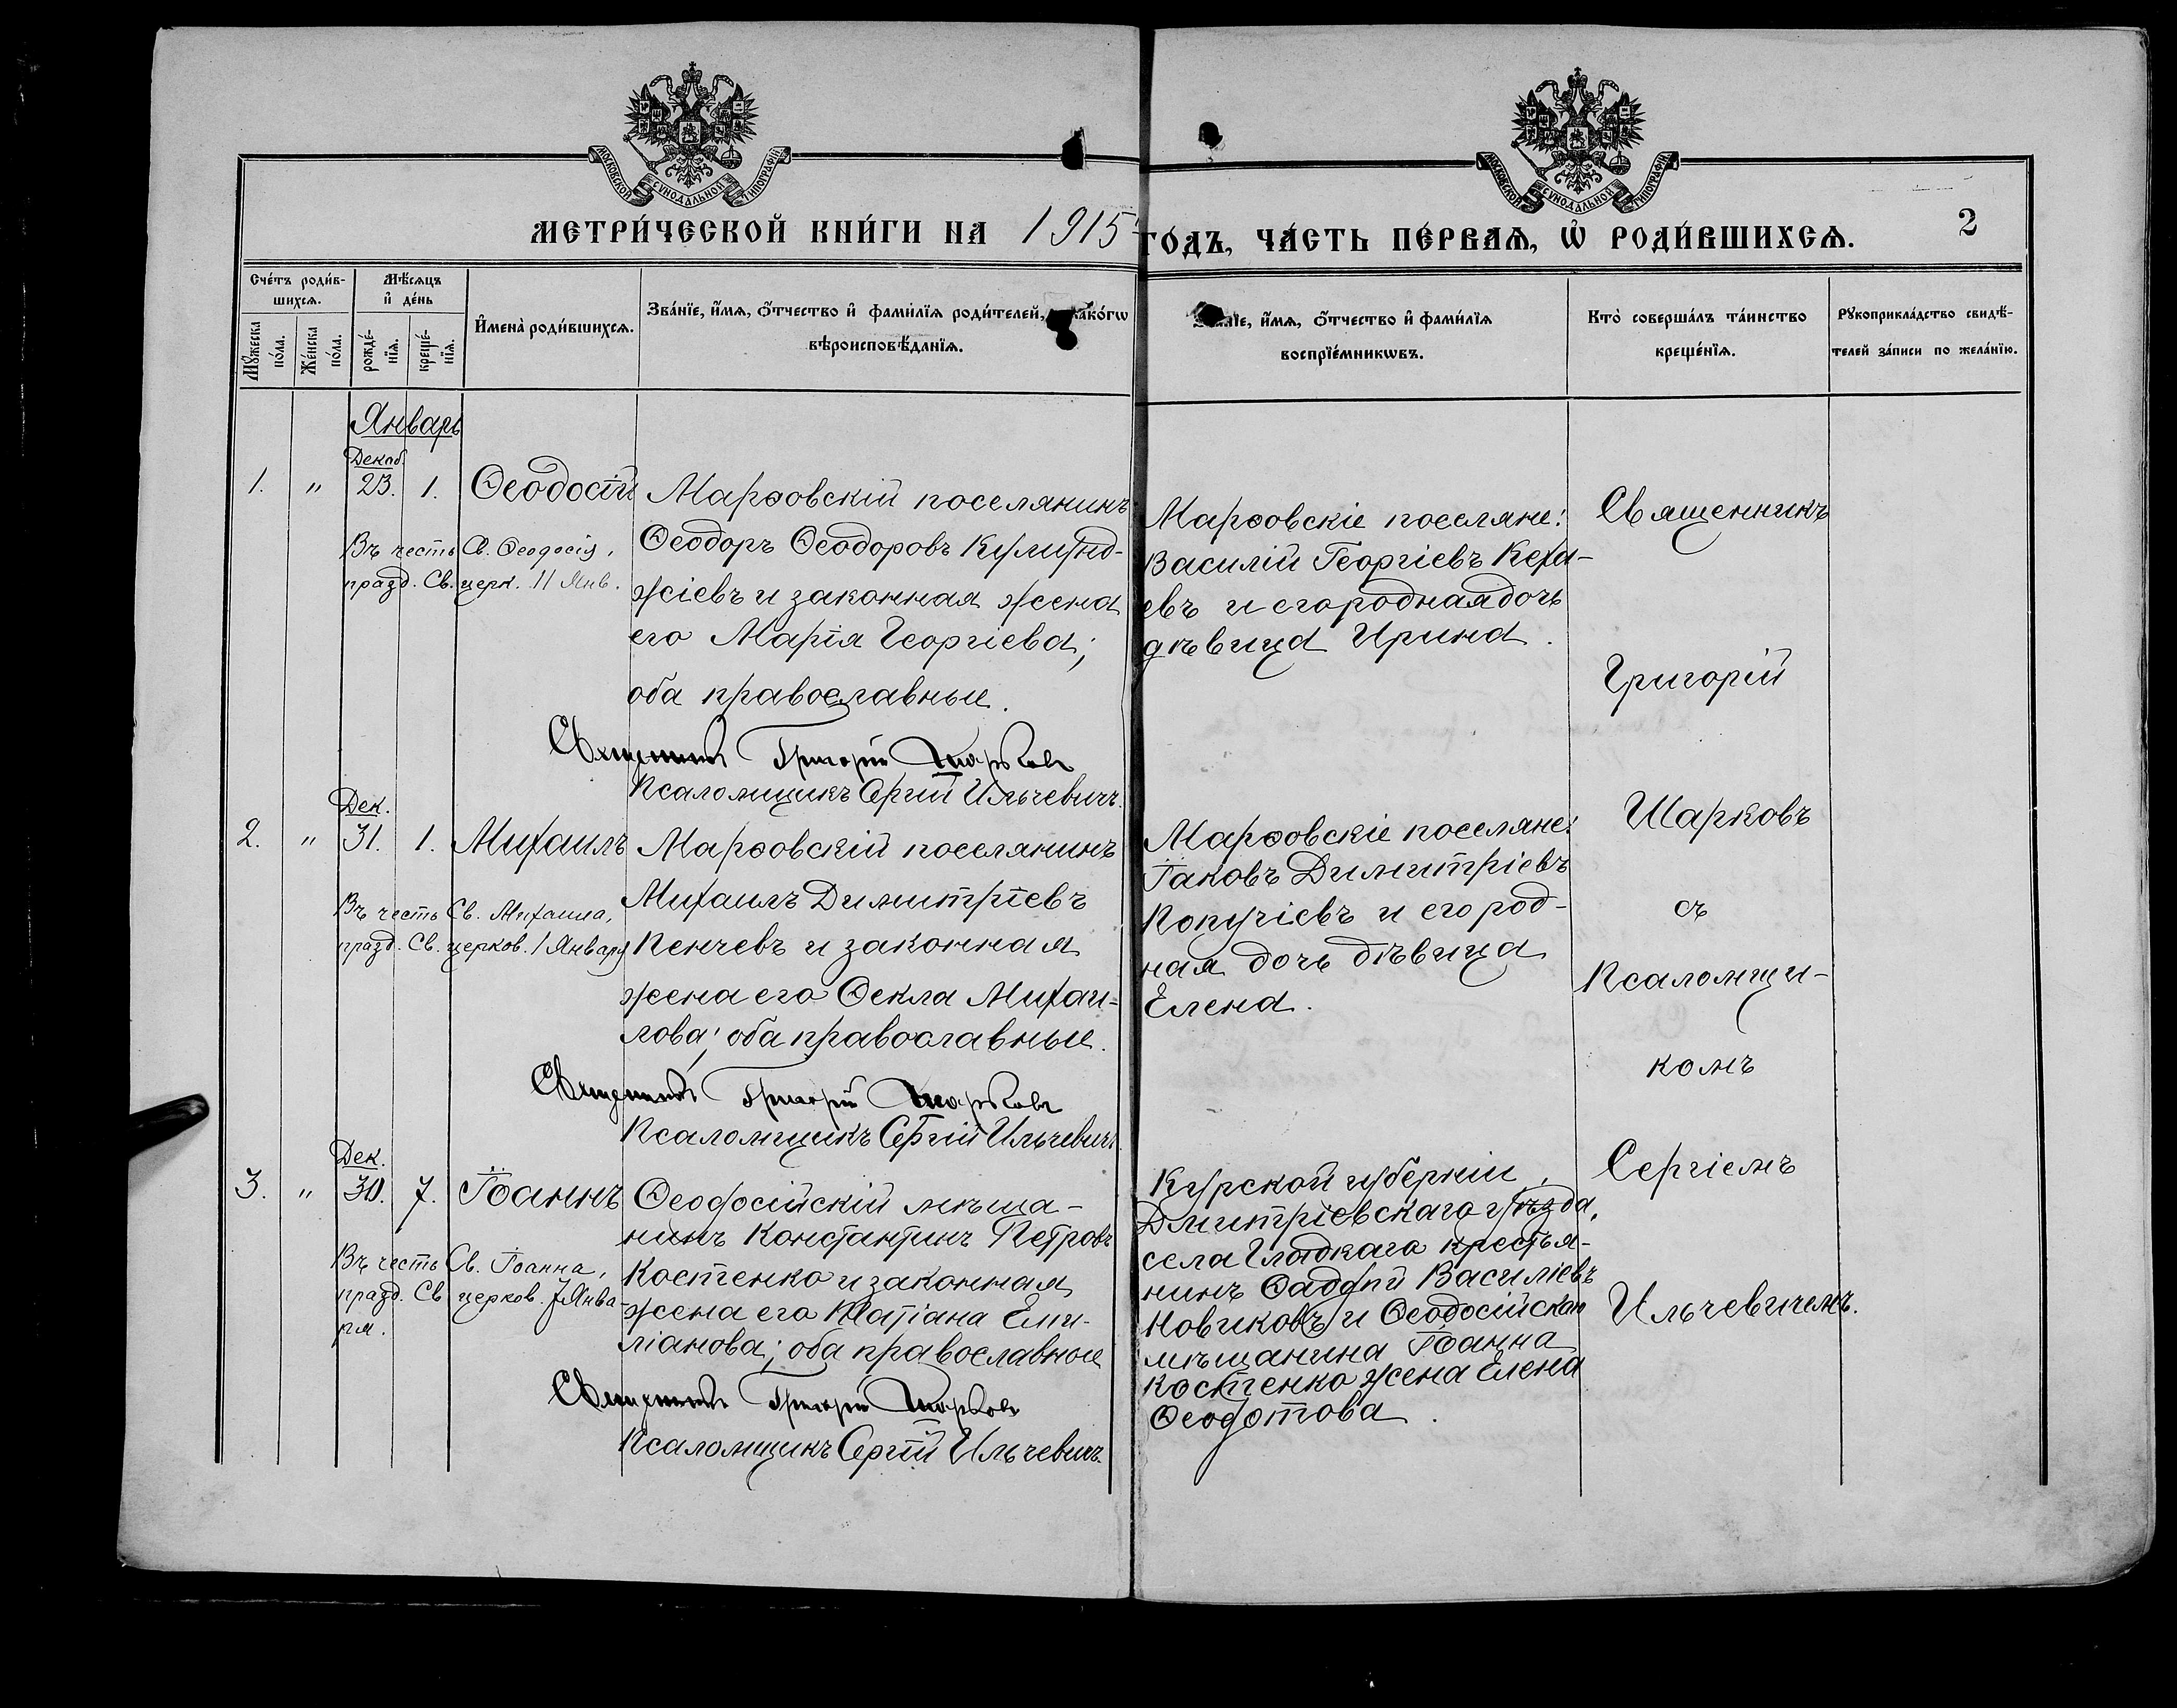 МОСКОВСКОЙ СѴНОДАЛЬНОЙ ТИПОГРАФІИ.
МОСКОВСКОЙ СѴНОДАЛЬНОЙ ТИПОГРАФІИ.
МЕТРИ́ЧЕСКОЙ КНИ́ГИ НА 1915
ГО́ДЪ, ЧА́СТЬ ПЕ́РВАѦ, Ѡ҆ РОДИ́ВШИХСѦ.
2
Сче́тъ роди́в-
шихсѧ.
Мꙋ́жеска
по́ла.
Же́нска
по́ла.
Мѣ́сѧцъ
и҆ де́нь
рожде́-
нїѧ.
креще́-
нїѧ.
И҆мена̀ роди́вшихсѧ.
Зва́нїе, и҆́мѧ, ѻ҆́тчество и҆ фами́лїѧ роди́телей, како́гѡ
вѣроисповѣ́данїѧ.
и҆́мѧ, ѻ҆́тчество и҆ фами́лїѧ
воспрїе́мникѡвъ.
Кто̀ соверша́лъ та́инство
креще́нїѧ.
Рꙋкоприкла́дство свидѣ́-
телей за́писи по жела́нїю.
Январь
Декаб.
1. " 23. 1. Ѳеодосій
Въ честь Св. Ѳеодосія,
празд. Св. церк. 11 Янв.
Марѳовскій поселянинъ
Ѳеодоръ Ѳеодоровъ Кулинд-
жіевъ и законная жена
его Марія Георгіева;
оба православные.
Священникъ Григорій Шарковъ
Псаломщикъ Сергій Ильчевичъ.
Марѳовскіе поселяне:
Василій Георгіевъ Кехи-
евъ и его родная дочь
дѣвица Ирина.
Дек.
2. " 31. 1. Михаилъ
Въ честь Св. Михаила,
празд. Св. церков. 1 Января
Марѳовскій поселянинъ
Михаилъ Димитріевъ
Пенчевъ и законная
жена его Ѳекла Михаи-
лова; оба православные.
Священникъ Григорій Шарковъ
Псаломщикъ Сергій Ильчевичъ
Марѳовскіе поселяне:
Іаковъ Димитріевъ
Копучіевъ и его род-
ная дочь дѣвица
Елена.
Дек.
3. " 30. 7. Іоаннъ
Въ честь Св. Іоанна,
празд. Св. церков. 7 Янва-
ря.
Ѳеодосійскій мѣща-
нинъ Константинъ Петровъ
Костенко и законная
жена его Татіана Еми-
ліанова; оба православные
Священникъ Григорій Шарковъ
Псаломщикъ Сергій Ильчевичъ.
Курской губерніи,
Дмитріевскаго уѣзда,
села Гладкаго крестья-
нинъ Ѳаддей Василіевъ
Новиковъ и Ѳеодосійскаго
мѣщанина Іоанна
Костенко жена Елена
Ѳеодотова.
Священникъ
Григорій
Шарковъ
съ
Псаломщи-
комъ
Сергіемъ
Ильчевичемъ.